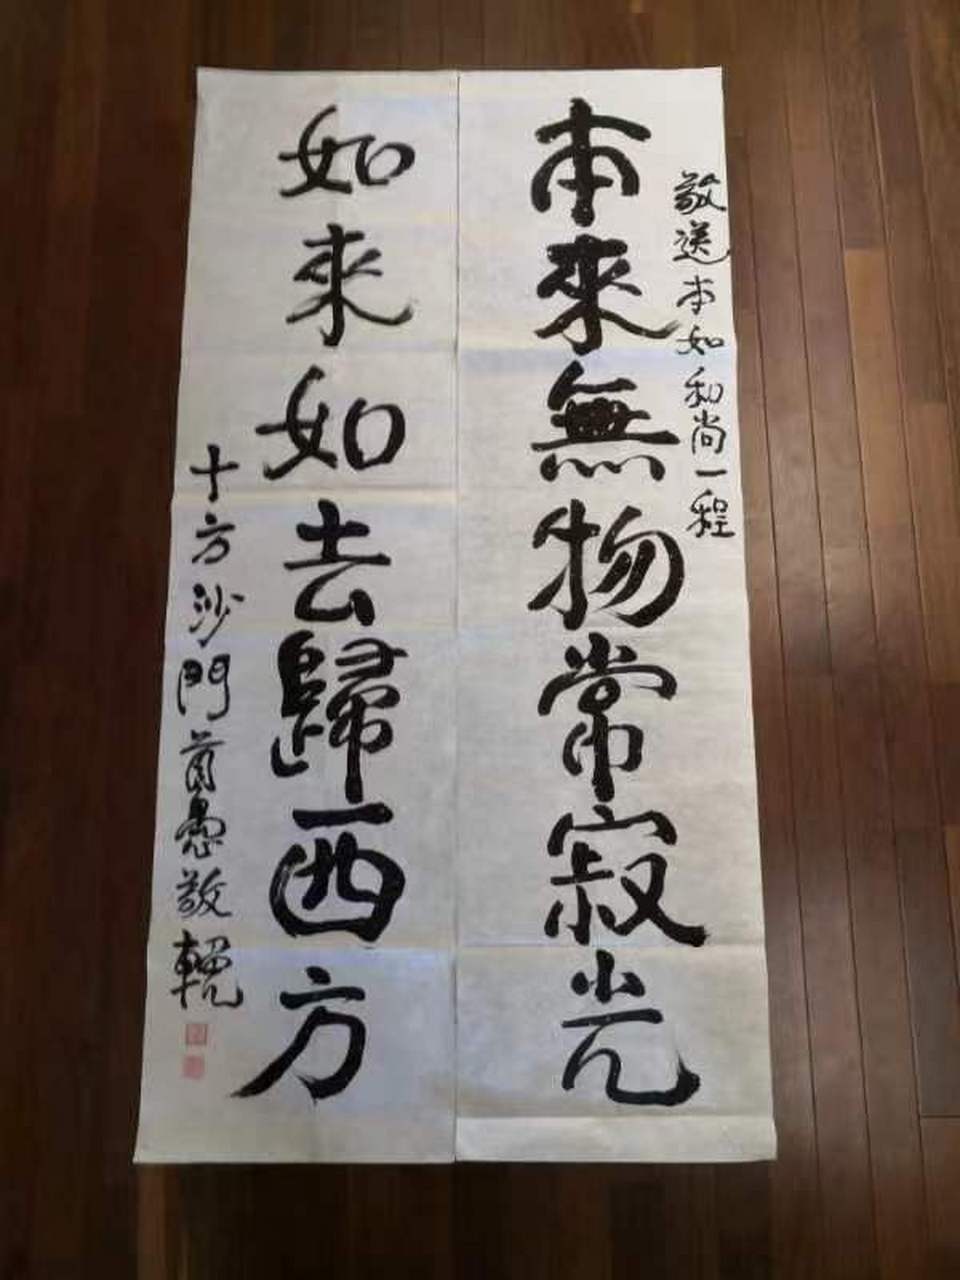 敬送本如和尚一程
本來無物常寂光
如來如去歸西方
十方沙門首愚敬輓